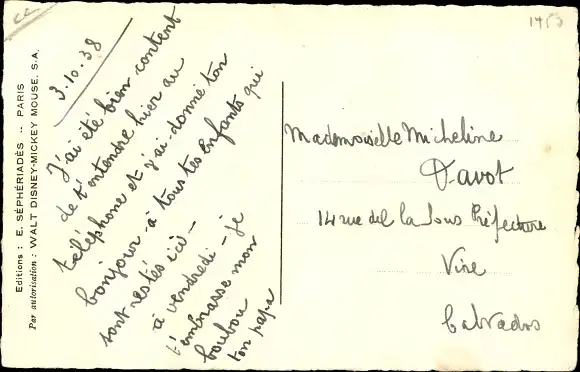 1453
Editions : E. SÉPHÉRIADÈS .. PARIS
Par autorisation : WALT DISNEY-MICKEY MOUSE. S.A.
3.10.38
J'ai été bien content
de t'entendre hier au
téléphone et j'ai donné ton
bonjour à tous tes enfants qui
sont restés ici –
à vendredi – je
t'embrasse mon
boubou
ton papa
Mademoiselle Micheline
Davot
14 rue del la Sous Préfecture
Vire
Calvados